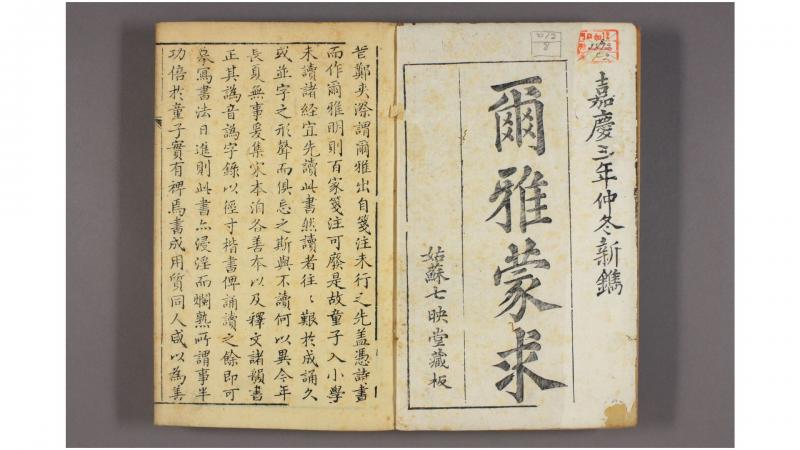 嘉慶三年仲冬新鐫
爾雅蒙求
姑蘇七映堂藏板
昔鄭夾漈謂爾雅出自箋注未行之先蓋憑詩書
而作爾雅明則百家箋注可廢是故童子入小學
未讀諸經宜先讀此書然讀者往〻艱於成誦久
或並字之形聲而俱忘之斯與不讀何以異今年
長夏無事爰集宋本洎各善本以及釋文諸韻書
正其譌音譌字錄以徑寸楷書俾誦讀之餘即可
摹寫書法日進則此書亦浸淫而爛熟所謂事半
功倍於童子實有裨焉書成用質同人咸以為善